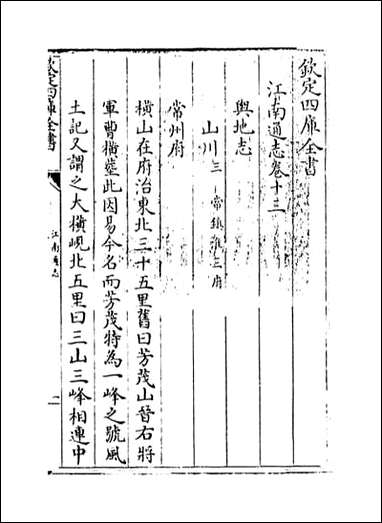 欽定四庫全書
江南通志卷十三
輿地志
山川三 常鎮淮三府
常州府
橫山在府治東北三十五里舊曰芳茂山晉右將
軍曹橫葬此因易今名而芳茂特為一峰之號風
土記又謂之大橫峴北五里曰三山三峰相連中
欽定四庫全書
江南通志
一